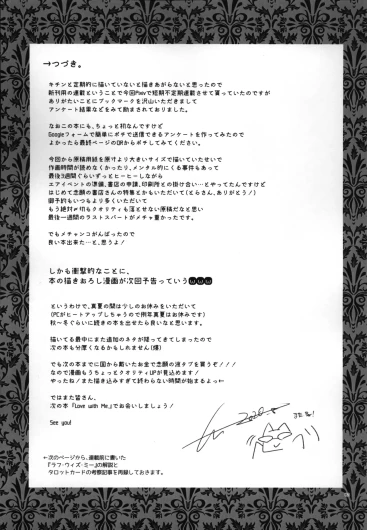 →つづき。
キチンと定期的に描いていないと描きあがらないと思ったので
新刊用の連載ということで今回Pixivで短期不定期連載させて貰っていたのですが
ありがたいことにブックマークを沢山いただきまして
アンケート結果などをみて励まされておりました。
なおこの本にも、ちょっと初なんですけど
Googleフォームで簡単にポチで送信できるアンケートを作ってみたので
よかったら最終ページのQRからポチしてみてください。
今回から原稿用紙を原寸より大きいサイズで描いていたせいで
作画時間が読めなかったり、メンタル的にくる事件もあって
最後3週間ぐらいずっとヒーヒーしながら
エアイベントの準備、書店の申請、印刷所との掛け合い…とやってたんですけど
はじめて念願の書店さんの特集とかもいただいて(とらさん、ありがとう!)
御予約もいつもより多くいただいて
もう絶対〆切もクオリティも落とせない原稿だなと思い
最後一週間のラストスパートがメチャ重かったです。
でもメチャンコがんばったので
良い本出来た…と、思うよ!
しかも衝撃的なことに、
本の描きおろし漫画が次回予告っていう
というわけで、真夏の間は少しのお休みをいただいて
(PCがヒートアップしちゃうので例年真夏はお休みです)
秋～冬ぐらいに続きの本を出せたら良いなと思います。
描いてる最中にまた追加のネタが降ってきてしまったので
次の本も分厚くなるかもしれません(爆)
でも次の本までに国から戴いたお金で念願の液タブを買うぞ!!!
なので漫画もうちょっとクオリティUPが見込めます!
やったね!また描き込みすぎて終わらない時間が始まるよっ←
ではまた皆さん、
次の本『Love with Me』でお会いしましょう!
See you!
←次のページから、連載前に書いた
『ラブ・ウィズ・ミー』の解説と
タロットカードの考察記事を再録しておきます。